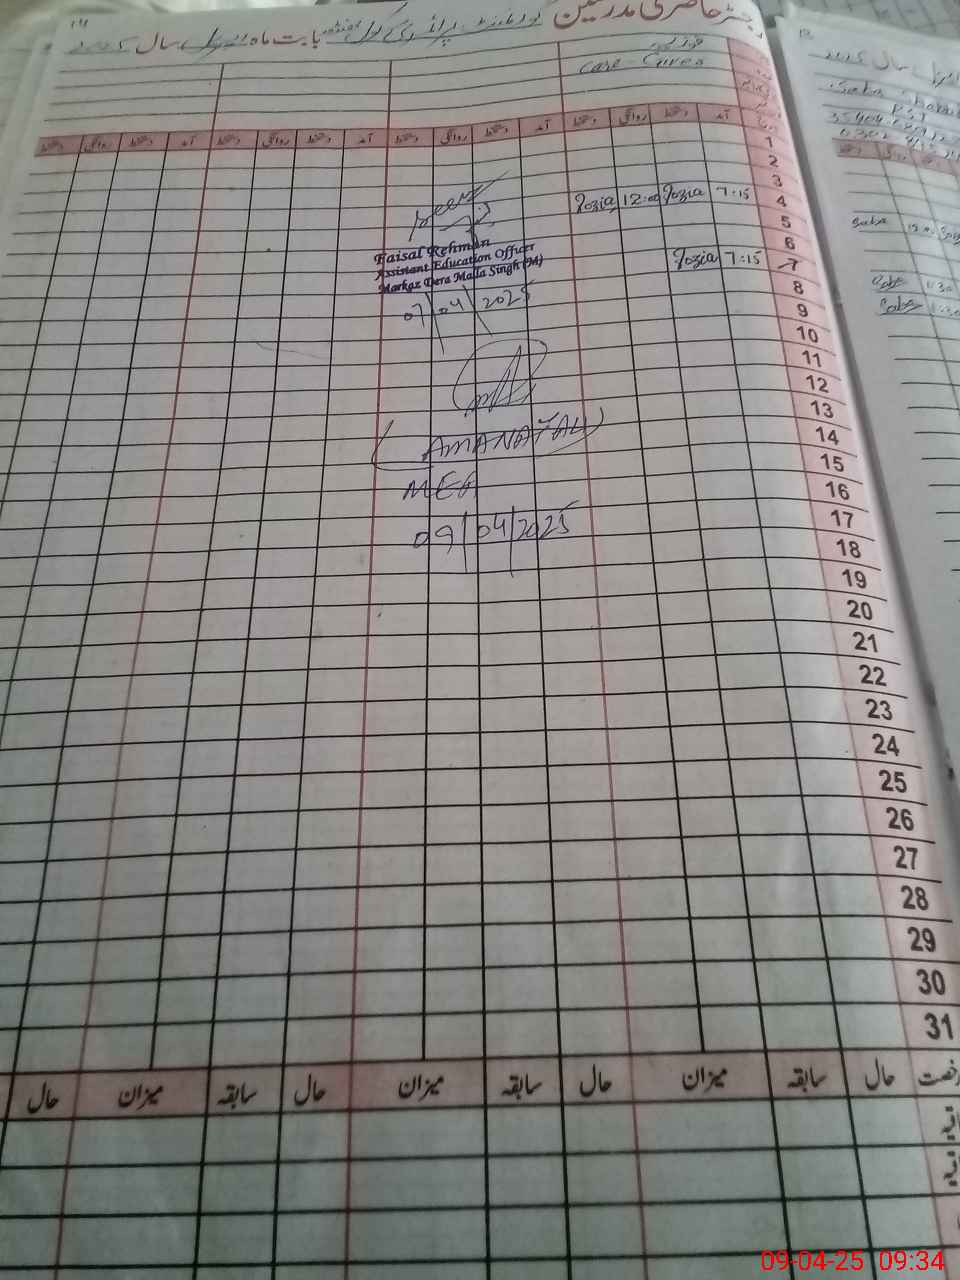 رجسٹر حاضری مدرسین گورنمنٹ پرائمری سکول بابت ماہ اپریل سال 2025
فوزیہ
Care Giver
آمد دستخط روانگی دستخط آمد دستخط روانگی دستخط آمد دستخط روانگی دستخط
1
2
3
4 7:15 Fozia 12:00 Fozia
5
6
7 7:15 Fozia
8
9
10
11
12
13
14
15
16
17
18
19
20
21
22
23
24
25
26
27
28
29
30
31
Faisal Rehman
Assistant Education Officer
Markaz Dera Malla Singh (M)
07/04/2025
(AMANAT ALI)
MEA
09/04/2025
رخصت حال سابقہ میزان حال سابقہ میزان حال سابقہ میزان حال
اپریل سال 2025
Saba
PST
Saba
Saba 1:30
Saba 1:30
09-04-25 09:34